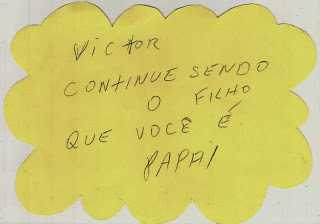 VICTOR
CONTINUE SENDO
O FILHO
QUE VOCÊ É
PAPAI